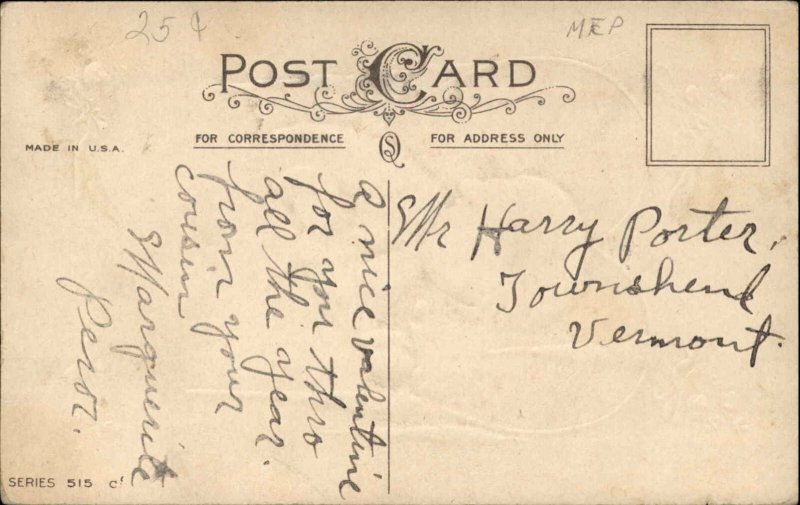 25¢
MEP
POST CARD
FOR CORRESPONDENCE
FOR ADDRESS ONLY
MADE IN U.S.A.
A nice valentine
for you thro
all the year.
from your
cousin
Marguerite
Mr Harry Porter,
Townshend
Vermont.
SERIES 515